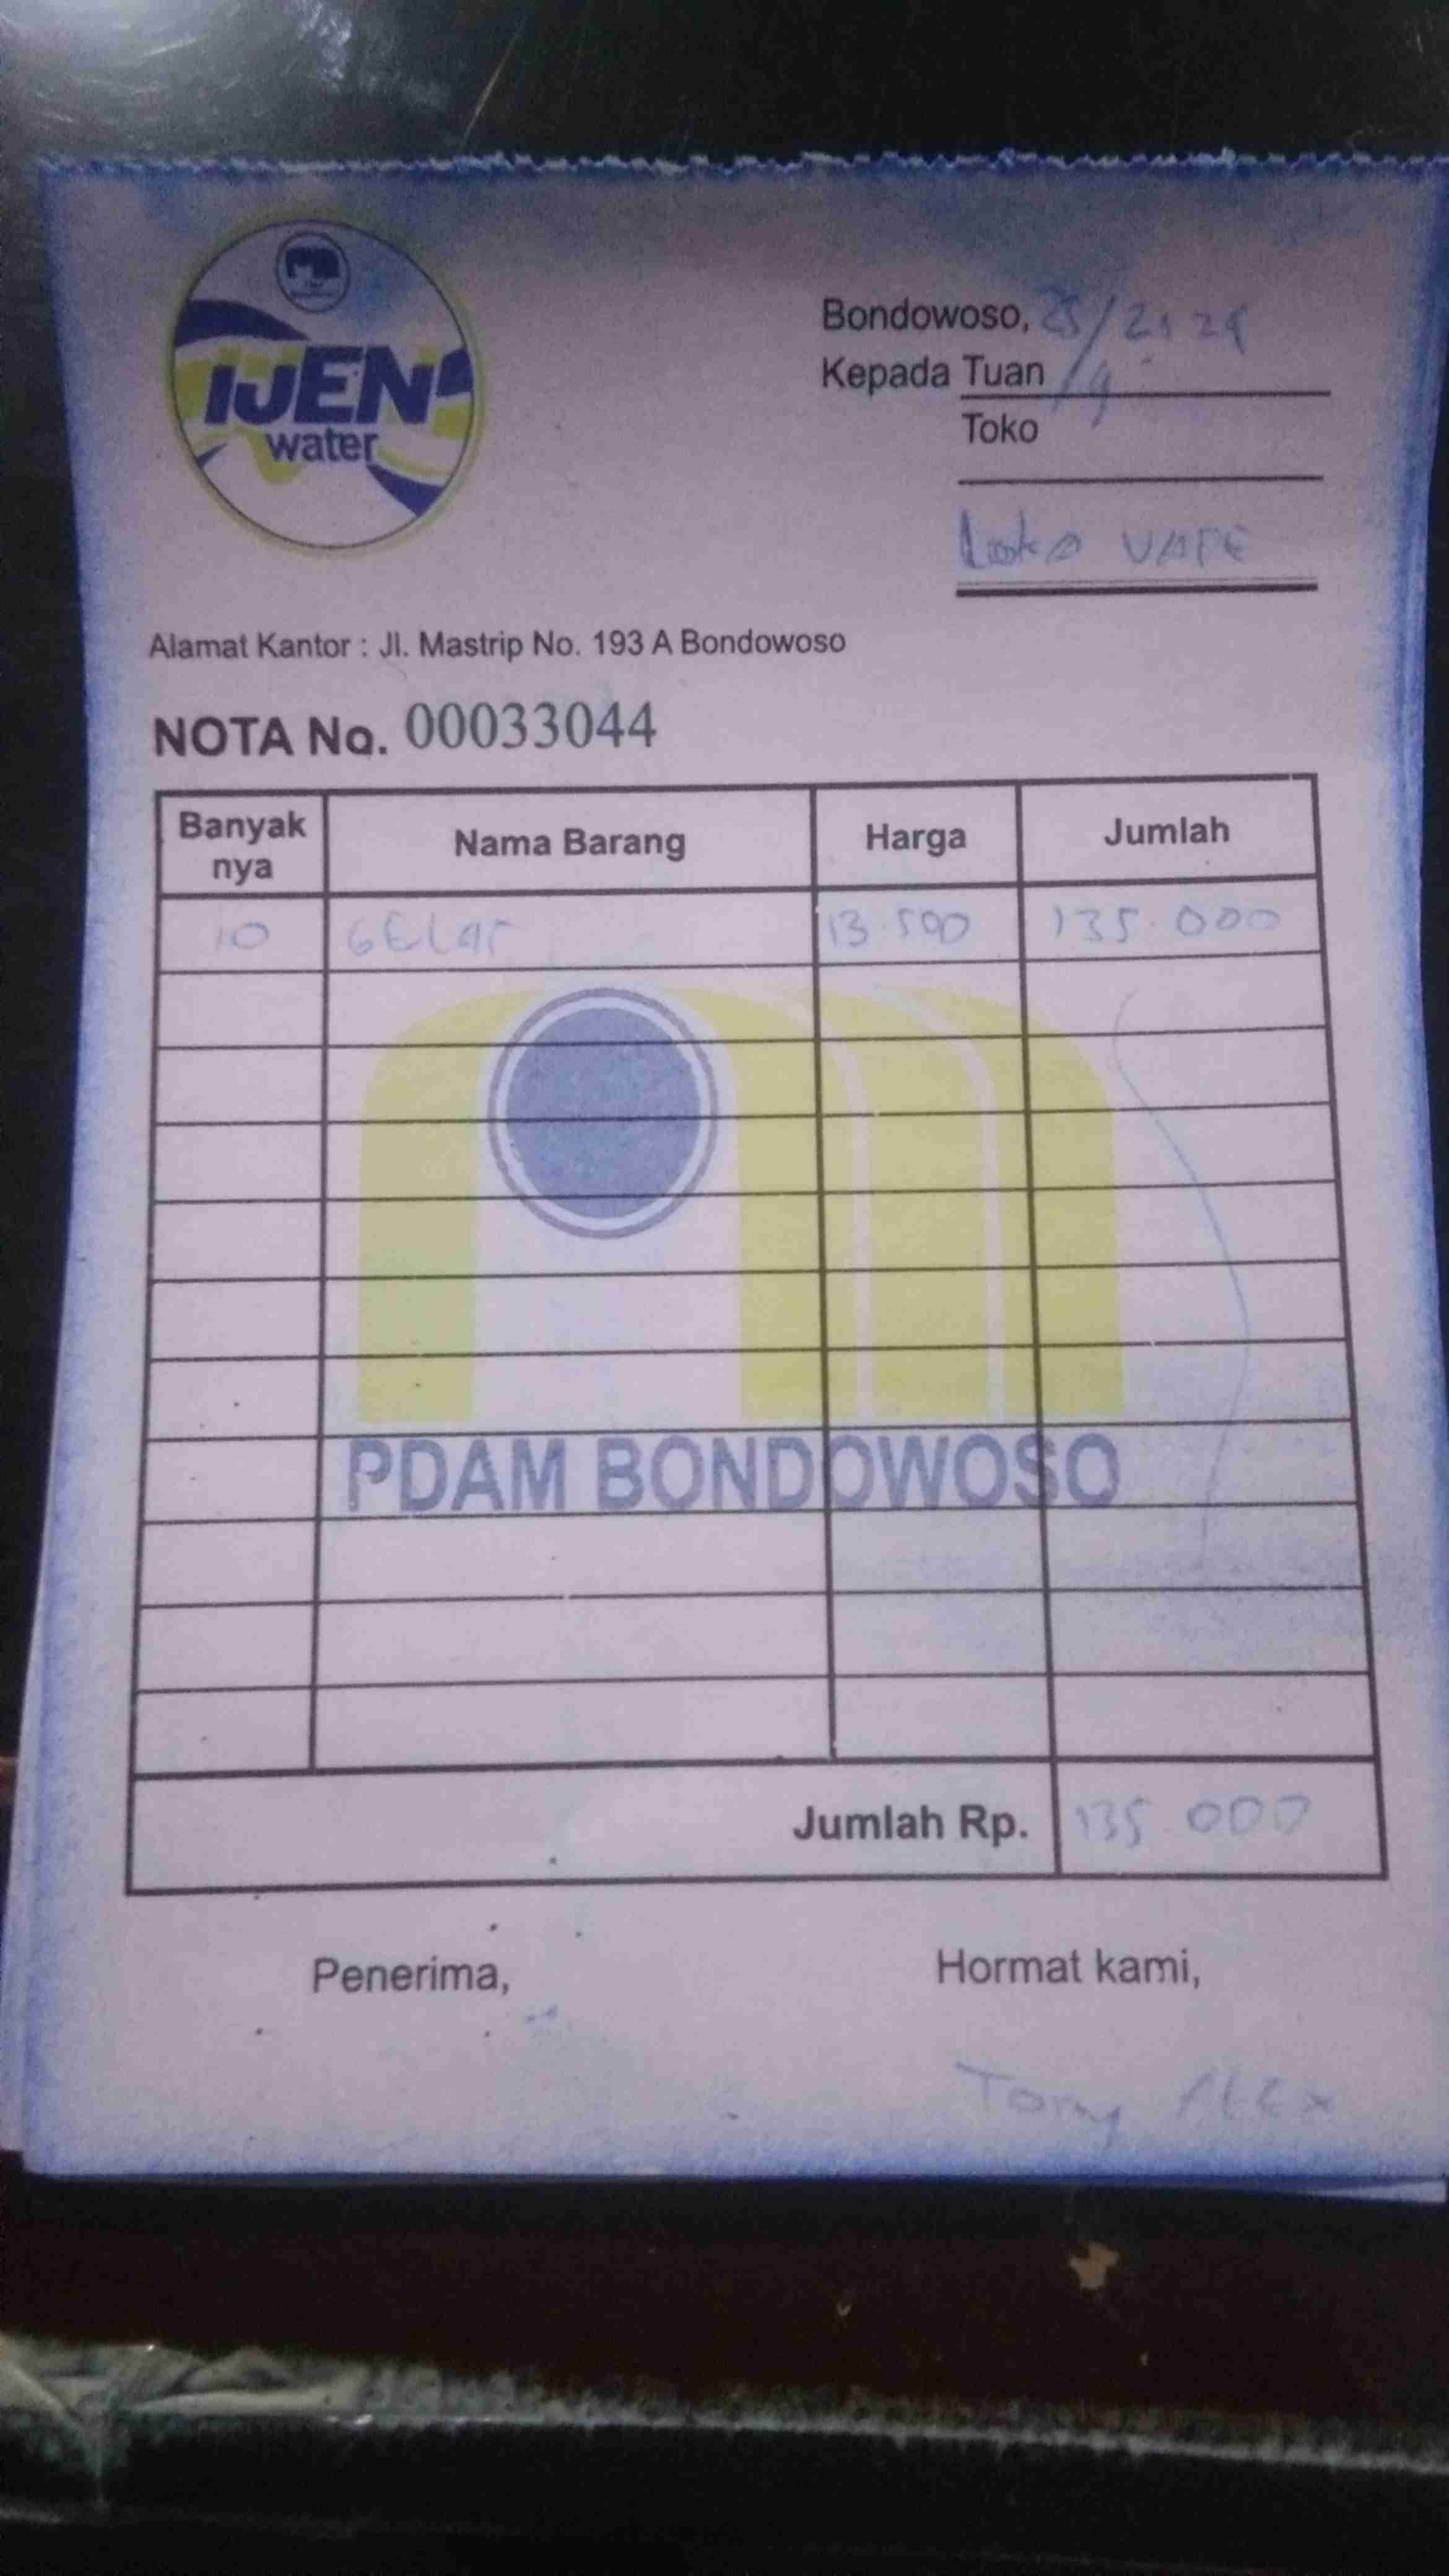 IJEN
water
Bondowoso, 25/
Kepada Tuan
Toko
VAPE
Alamat Kantor : Jl. Mastrip No. 193 A Bondowoso
NOTA No. 00033044
Banyak nya Nama Barang Harga Jumlah
10 GELAS 13.500 135.000
PDAM BONDOWOSO
Jumlah Rp. 135.000
Penerima, Hormat kami,
Tony